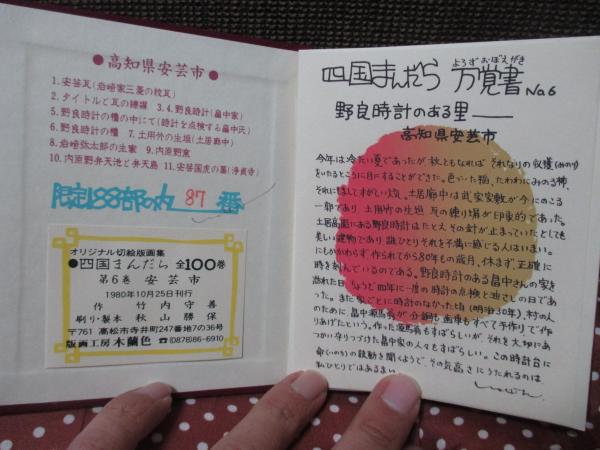 ●高知県安芸市●
1.安芸瓦(岩崎家三菱の枕瓦)
2.タイトルと瓦の練塀 3.4.野良時計(畠中家)
5.野良時計の櫓の中にて(時計を点検する畠中氏)
6.野良時計の櫓 7.土用竹の生垣(土居廓中)
8.岩崎弥太郎の生家 9.内原野窯
10.内原野弁天池と弁天島 11.安芸国虎の墓(浄貞寺)
限定188部の内 87 番
オリジナル切絵版画集
●四国まんだら 全100巻
第6巻 安芸市
1980年10月25日刊行
作 竹内守善
刷り・製本 秋山勝保
〒761 高松市寺井町247番地7の36号
版画工房 木蘭色 ☎(0878)86-6910
四国まんだら 万覚書 No.6
よろずおぼえがき
野良時計のある里——
高知県安芸市
今年は冷たい夏であったが秋ともなれば それなりの収穫(みのり)
をいたるところに目にすることができた。色いた稲、たわわにみのる柿、
それに
すがすがしい
土居廓中は武家家敷が今にのこる
一郭であり、土用竹の生垣、瓦の練り塀が印象的であった。
土居高
にある野良時計はたとえその針が止まっていたとしても
美しい建物であり誰ひとりそれを不満に感じる人はいまい。
にもかかわらず、作られてから80年もの歳月、休まず、正確に
時を刻んでいるのである。野良時計のある畠中さんの家を
訪れた日、ちょうど
年に一度の時計の点検と油さしの日であ
った。まだ家ごとに時計のなかった頃(明治30年)、村の人
のために、畠中源馬翁が分銅も歯車もすべて手作りで作
りあげたという。作った源馬翁もすばらしいが、それを大切にあ
つかい守りつづけた畠中家の人々もすばらしい。この時計台に
命(いのち)の鼓動を聞くようで、その気高さにうたれるのは
私ひとりではあるまい。